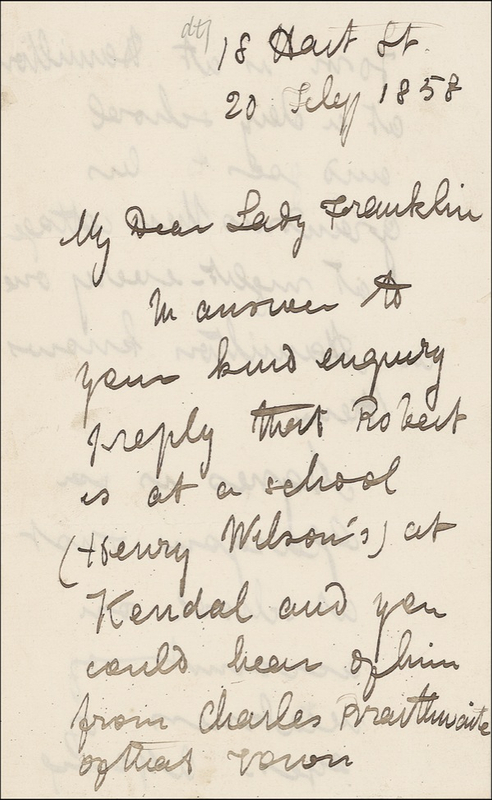 18 Hart St.
20 July 1858
My Dear Lady Franklin
In answer to
your kind enquiry
I reply that Robert
is at a school
(Henry Wilson's) at
Kendal and you
could hear of him
from Charles Braithwaite
of that town